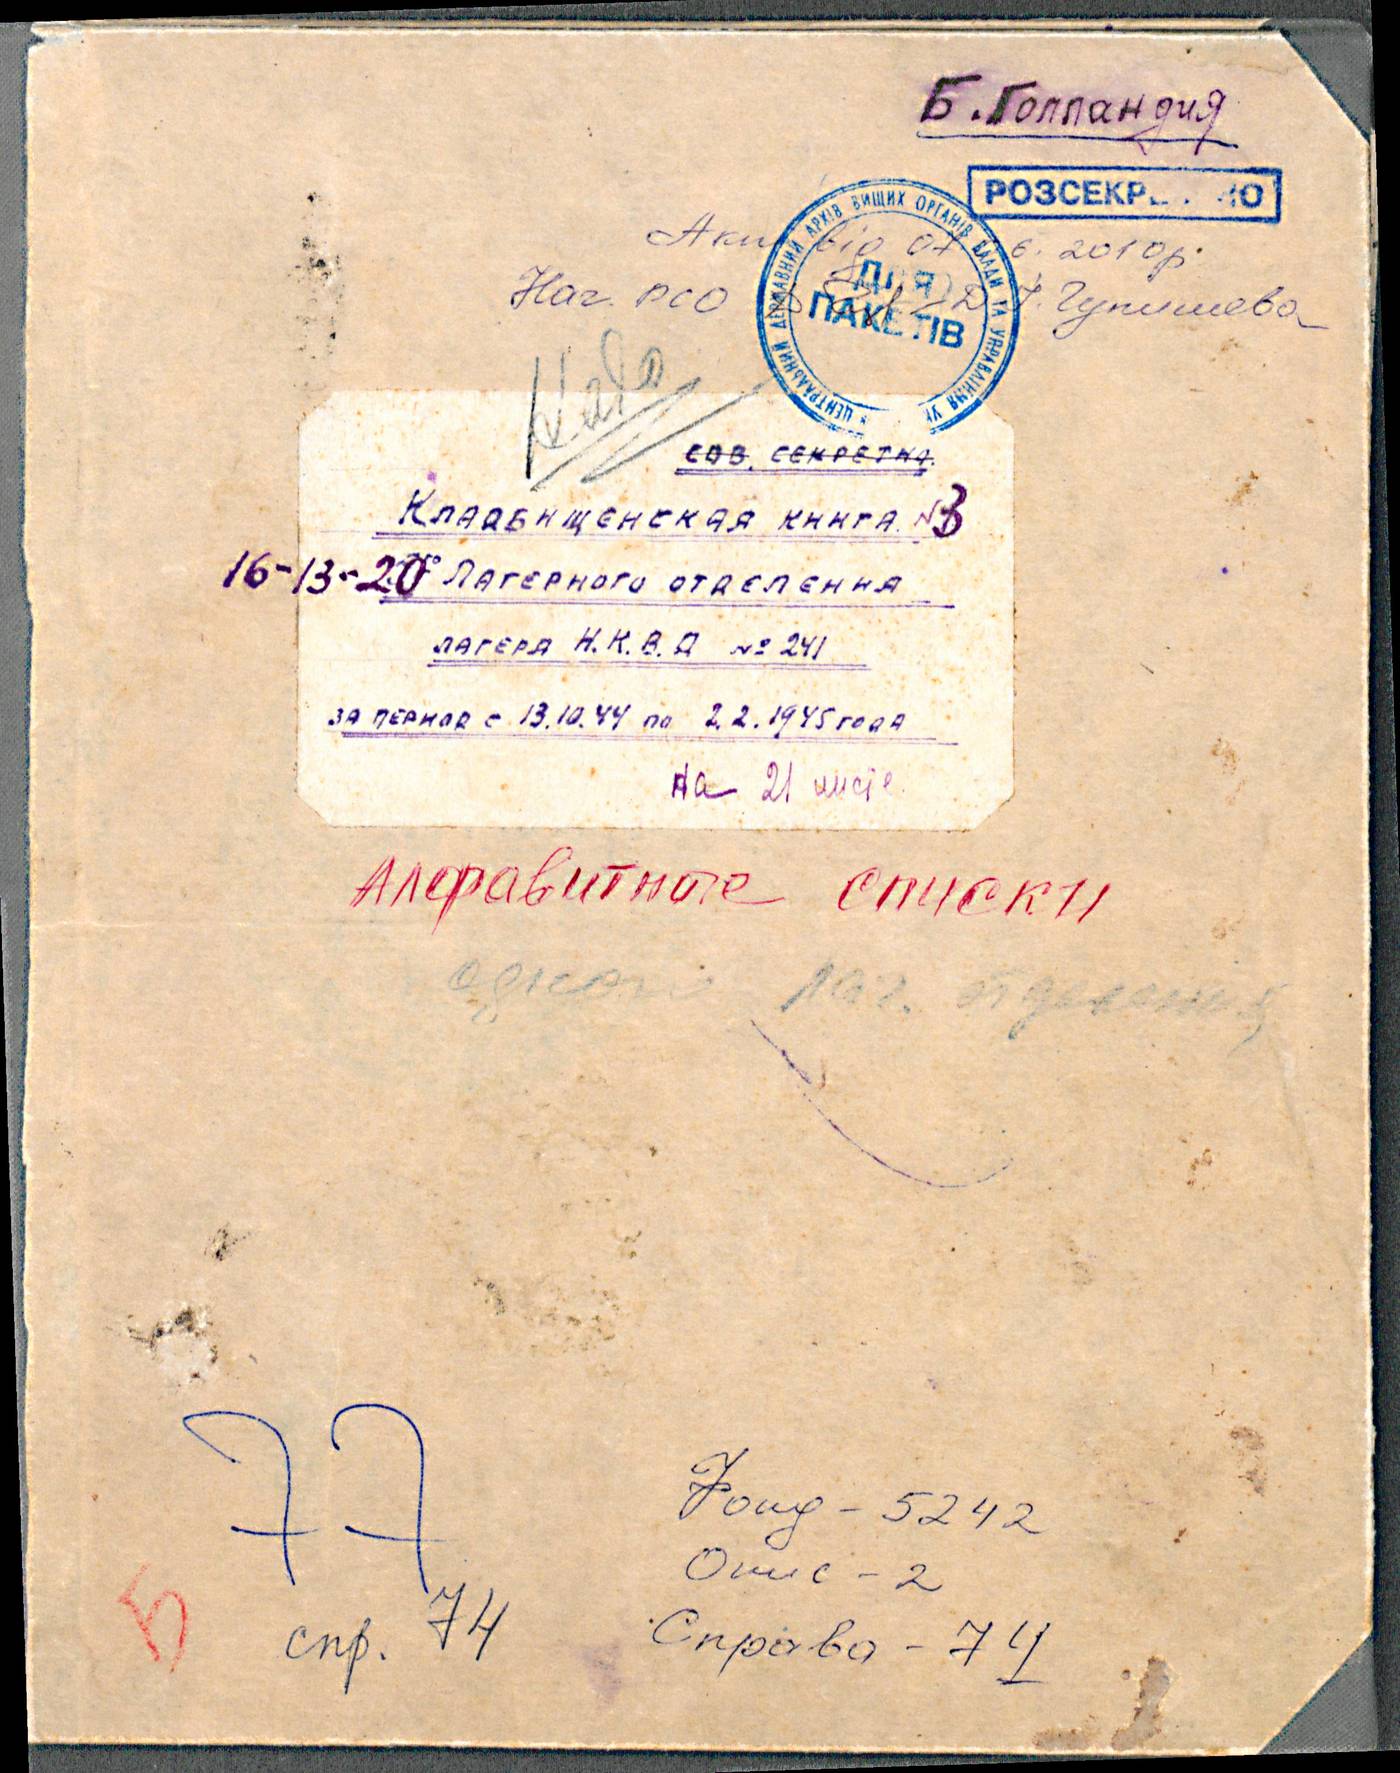 Б. Голландия
РОЗСЕКР
О
Акт від 07 6. 2010р.
Нач. РСО
ЦЕНТРАЛЬНИЙ ДЕРЖАВНИЙ АРХІВ ВИЩИХ ОРГАНІВ ВЛАДИ ТА УПРАВЛІННЯ УК
ДЛЯ
ПАКЕТІВ
СОВ. СЕКРЕТНО.
Кладбищенская книга №3
16-13-20го Лагерного отделения
лагеря Н.К.В.Д №241
за период с 13.10.44 по 2.2.1945 года
на 21 листе
Алфавитные списки
одного лаг. отделения
77
Б
спр. 74
Фонд - 5242
Опис - 2
Справа - 74